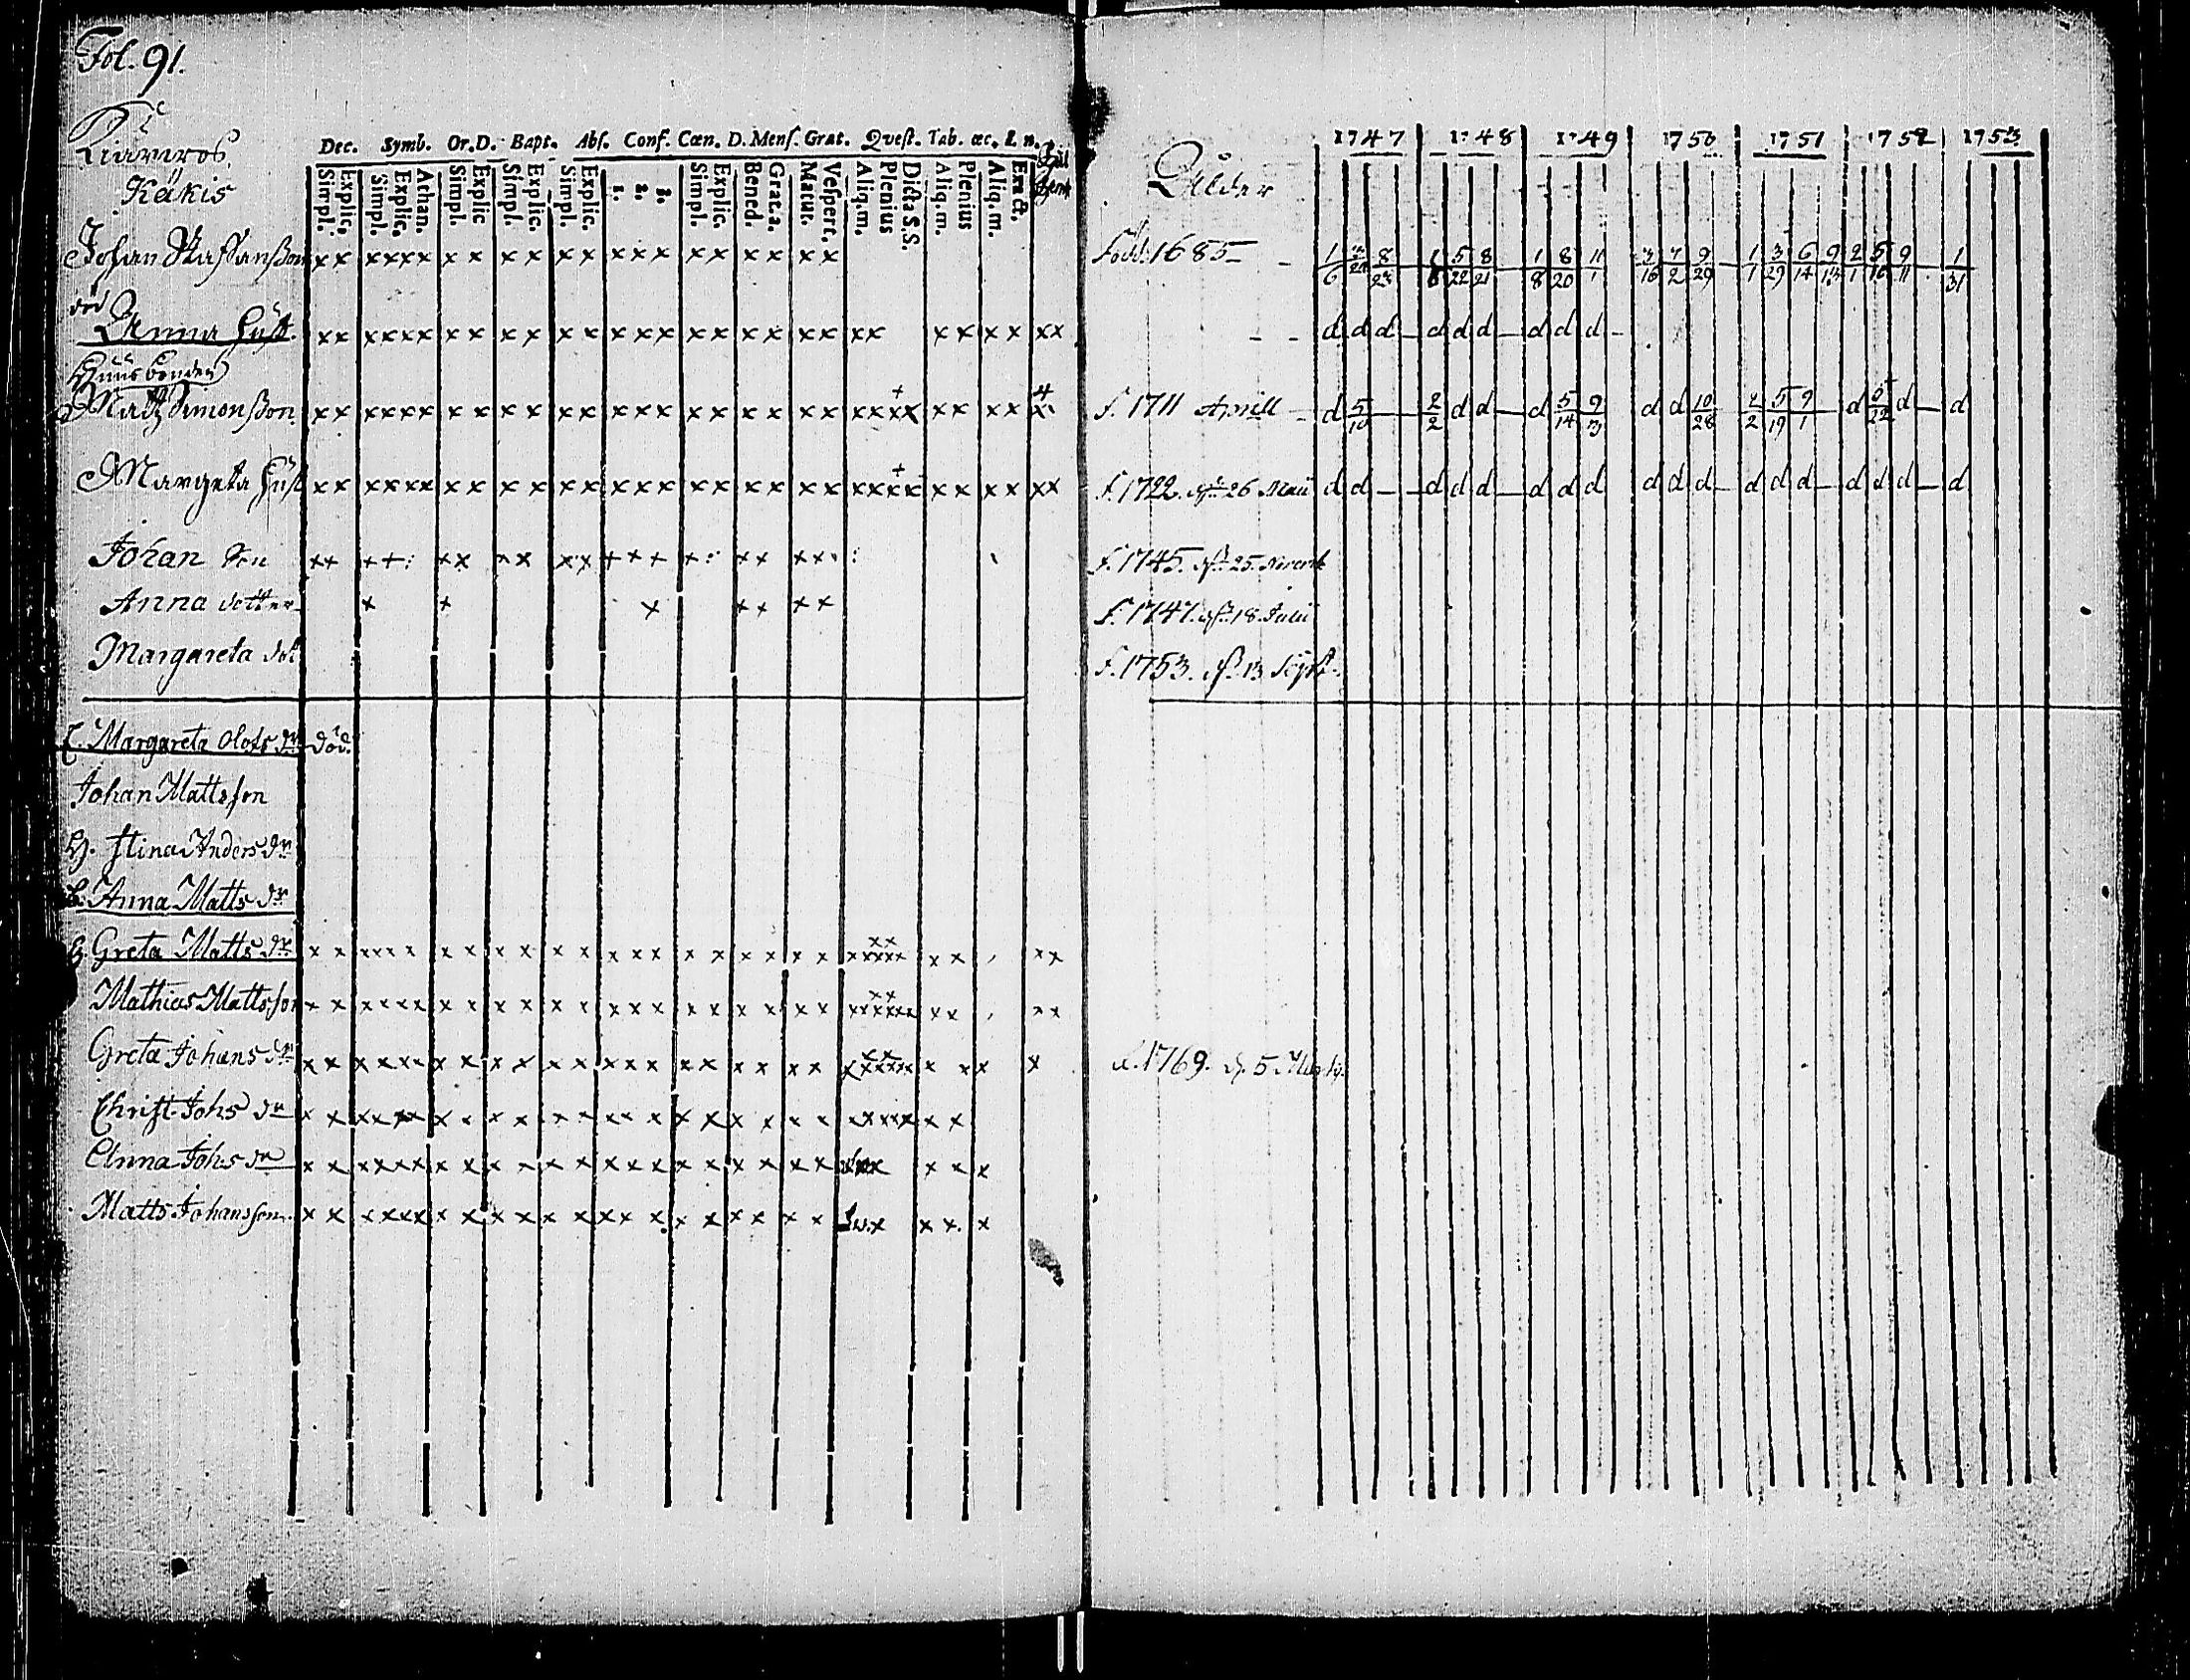 Fol. 91.
Kiarvros.
Käkis
Dec. Symb. Or.D. Bapt. Abs. Conf. Cœn. D. Mens. Grat. Qvest. Tab. œc. L. n.
Simpl. Explic. Simpl. Explic. Athan. Simpl. Explic Simpl. Explic. Simpl. Explic. 1. 2. 3. Simpl. Explic. Bened. Grat.a. Matur. Vespert. Aliq.m. Plenius Dicta S.S. Aliq.m. Plenius Aliq.m. Exact.
Ålder 1747 1748 1749 1750 1751 1752 1753
Johan Staffansson xx xxxx xx xx xx xxx xx xx xx Född 1685 1/6 8/23 5/22 8/21 1/8 8/20 11/1 3/16 7/2 9/29 1/1 3/29 6/14 9/13 2/1 5/10 9/11 1/31
Anna Hust. xx xxxx xx xx xx xxx xx xx xx xx xx xx xx d d d d d d d d d
Huusbonden
Matz Simonsson xx xxxx xx xx xx xxx xx xx xx xxxx xx xx f. 1711 Aprill d 5/10 2/2 d d d 5/14 9/3 d d 10/28 2/2 5/19 9/1 d 5/22 d d
Margeta Hust xx xxxx xx xx xx xxx xx xx xx xxxx xx xx xx f. 1722. 26 Maii d d d d d d d d d d d d d d d d d d
Johan Son xx ++: xx xx xx +++ +: xx xx f. 1745. 25. Novemb
Anna dotter x + x ++ ++ f. 1747. 18. Julii
Margareta dot f. 1753. 13 Sept.
E. Margareta Olofs dr död.
Johan Mattsson
H. Stina Anders dr
Anna Matts dr
Greta Matts dr x x xxxx x x x x x x x x x x x x x x x xxxxx x x x x
Mathias Mattsson x x xxxx x x x x x x x x x x x x x x x xxxxx x x x x
Greta Johans dr x x xxxx x x x x x x x x x x x x x x x xxxxx x x x x d. 1769. d. 5 Martij.
Christ. Johs dr x x xxxx x x x x x x x x x x x x x x x xxxx x x
Anna Johs dr x x xxxx x x x x x x x x x x x x x x x x x x
Matts Johansson x x xxxx x x x x x x x x x x x x x x x x x x